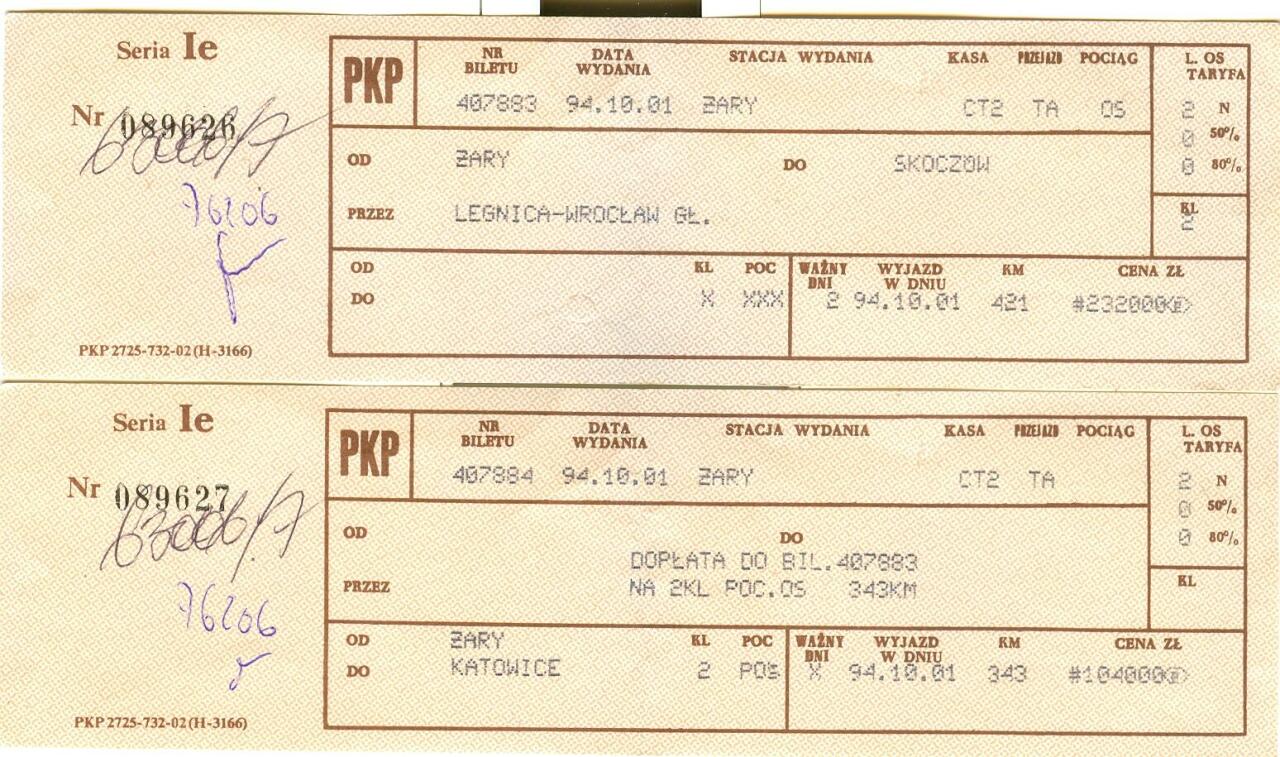 Seria Ie
Nr 089626
76206
PKP 2725-732-02 (H-3166)
PKP
NR BILETU DATA WYDANIA STACJA WYDANIA KASA PRZEJAZD POCIĄG L. OS TARYFA
407883 94.10.01 ŻARY CT2 TA OS 2 N
0 50%
0 80%
OD ŻARY DO SKOCZÓW
PRZEZ LEGNICA-WROCŁAW GŁ.
KL
2
OD KL POC WAŻNY DNI WYJAZD W DNIU KM CENA ZŁ
DO X XXX 2 94.10.01 421 #232000
Seria Ie
Nr 089627
76206
PKP 2725-732-02 (H-3166)
PKP
NR BILETU DATA WYDANIA STACJA WYDANIA KASA PRZEJAZD POCIĄG L. OS TARYFA
407884 94.10.01 ŻARY CT2 TA 2 N
0 50%
0 80%
OD DO
DOPŁATA DO BIL.407883
PRZEZ NA 2KL POC.OS 343KM
KL
OD ŻARY KL POC WAŻNY DNI WYJAZD W DNIU KM CENA ZŁ
DO KATOWICE 2 POŚ X 94.10.01 343 #104000